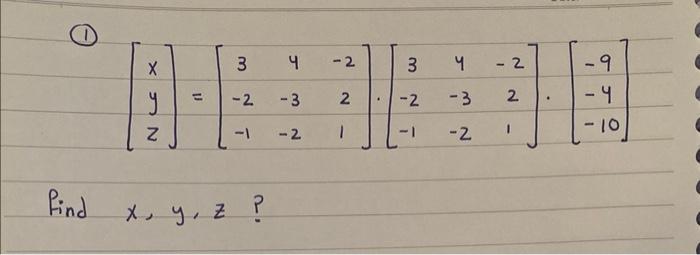 ①
[x y z] = [3 4 -2 -2 -3 2 -1 -2 1] . [3 4 -2 -2 -3 2 -1 -2 1] . [-9 -4 -10]
find x, y, z ?